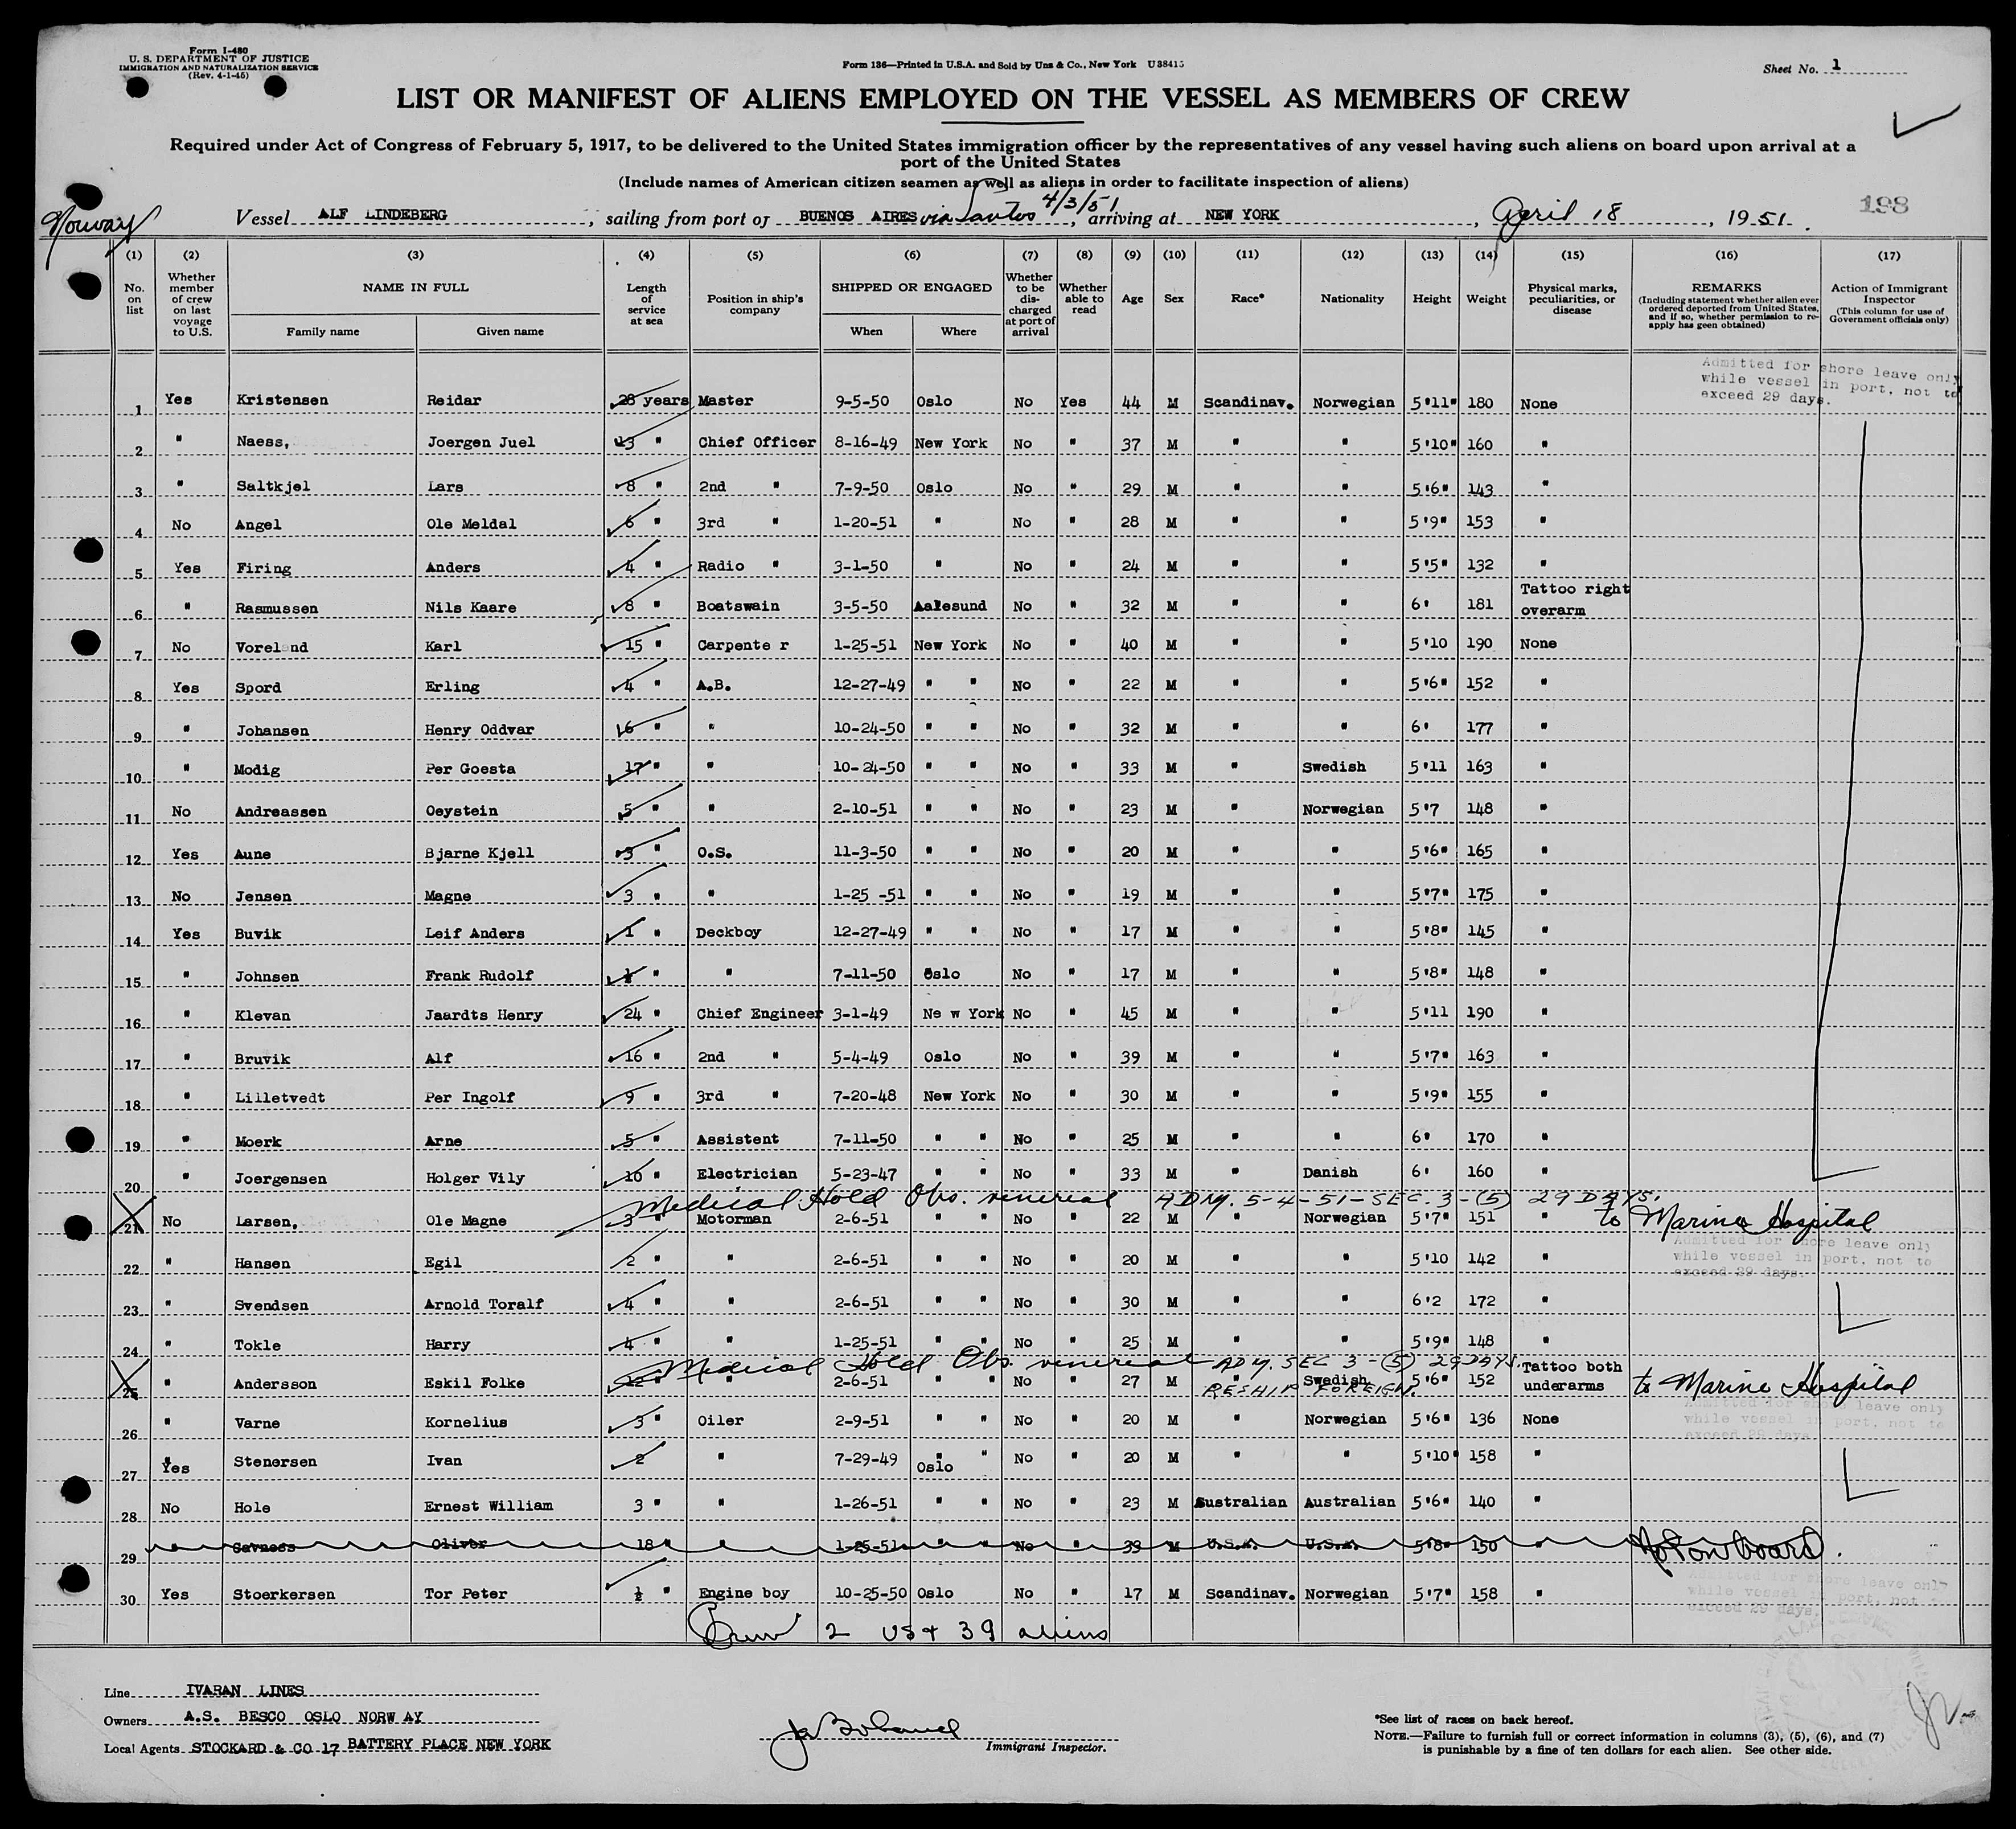 Form I-480
U. S. DEPARTMENT OF JUSTICE
IMMIGRATION AND NATURALIZATION SERVICE
(Rev. 4-1-45)
Form 136—Printed in U.S.A. and Sold by Unz & Co., New York U38415
Sheet No. 1
LIST OR MANIFEST OF ALIENS EMPLOYED ON THE VESSEL AS MEMBERS OF CREW
Required under Act of Congress of February 5, 1917, to be delivered to the United States immigration officer by the representatives of any vessel having such aliens on board upon arrival at a
port of the United States
(Include names of American citizen seamen as well as aliens in order to facilitate inspection of aliens)
198
Norway Vessel ALF LINDEBERG, sailing from port of BUENOS AIRES via Santos 4/3/51, arriving at NEW YORK, April 18, 1951.
(1) (2) (3) (4) (5) (6) (7) (8) (9) (10) (11) (12) (13) (14) (15) (16) (17)
No. on list
Whether member of crew on last voyage to U.S.
NAME IN FULL
Family name
Given name
Length of service at sea
Position in ship's company
SHIPPED OR ENGAGED
When
Where
Whether to be discharged at port of arrival
Whether able to read
Age
Sex
Race*
Nationality
Height
Weight
Physical marks, peculiarities, or disease
REMARKS
(Including statement whether alien ever ordered deported from United States, and if so, whether permission to re-apply has geen obtained)
Action of Immigrant Inspector
(This column for use of Government officials only)
Admitted for shore leave only
while vessel in port, not to
exceed 29 days.
1 Yes Kristensen Reidar 28 years Master 9-5-50 Oslo No Yes 44 M Scandinav. Norwegian 5'11" 180 None
2 " Naess, Joergen Juel 13 " Chief Officer 8-16-49 New York No " 37 M " " 5'10" 160 "
3 " Saltkjel Lars 8 " 2nd " 7-9-50 Oslo No " 29 M " " 5'6" 143 "
4 No Angel Ole Meldal 6 " 3rd " 1-20-51 " No " 28 M " " 5'9" 153 "
5 Yes Firing Anders 4 " Radio " 3-1-50 " No " 24 M " " 5'5" 132 "
6 " Rasmussen Nils Kaare 8 " Boatswain 3-5-50 Aalesund No " 32 M " " 6' 181 Tattoo right overarm
7 No Voreland Karl 15 " Carpente r 1-25-51 New York No " 40 M " " 5'10 190 None
8 Yes Spord Erling 4 " A.B. 12-27-49 " " No " 22 M " " 5'6" 152 "
9 " Johansen Henry Oddvar 16 " " 10-24-50 " " No " 32 M " " 6' 177 "
10 " Modig Per Goesta 17 " " 10-24-50 " " No " 33 M " Swedish 5'11 163 "
11 No Andreassen Oeystein 5 " " 2-10-51 " " No " 23 M " Norwegian 5'7 148 "
12 Yes Aune Bjarne Kjell 3 " O.S. 11-3-50 " " No " 20 M " " 5'6" 165 "
13 No Jensen Magne 3 " " 1-25 -51 " " No " 19 M " " 5'7" 175 "
14 Yes Buvik Leif Anders 1 " Deckboy 12-27-49 " " No " 17 M " " 5'8" 145 "
15 " Johnsen Frank Rudolf ½ " " 7-11-50 Oslo No " 17 M " " 5'8" 148 "
16 " Klevan Jaardts Henry 24 " Chief Engineer 3-1-49 Ne w York No " 45 M " " 5'11 190 "
17 " Bruvik Alf 16 " 2nd " 5-4-49 Oslo No " 39 M " " 5'7" 163 "
18 " Lilletvedt Per Ingolf 9 " 3rd " 7-20-48 New York No " 30 M " " 5'9" 155 "
19 " Moerk Arne 5 " Assistent 7-11-50 " " No " 25 M " " 6' 170 "
20 " Joergensen Holger Vily 10 " Electrician 5-23-47 " " No " 33 M " Danish 6' 160 "
Medical Hold Obs. venereal ADM. 5-4-51-SEC. 3-(5) 29 DAYS.
21 No Larsen, Ole Magne 3 " Motorman 2-6-51 " " No " 22 M " Norwegian 5'7" 151 " to Marine Hospital
Admitted for shore leave only
while vessel in port, not to
exceed 29 days.
22 " Hansen Egil 2 " " 2-6-51 " " No " 20 M " " 5'10 142 "
23 " Svendsen Arnold Toralf 4 " " 2-6-51 " " No " 30 M " " 6'2 172 "
24 " Tokle Harry 4 " " 1-25-51 " " No " 25 M " " 5'9" 148 "
Medical Hold Obs. venereal ADM. SEC 3-(5) 29 DAYS.
25 " Andersson Eskil Folke 12 " " 2-6-51 " " No " 27 M " Swedish 5'6" 152 Tattoo both underarms to Marine Hospital
RESHIP FOREIGN.
Admitted for shore leave only
while vessel in port, not to
exceed 29 days
26 " Varne Kornelius 3 " Oiler 2-9-51 " " No " 20 M " Norwegian 5'6" 136 None
27 Yes Stenersen Ivan 2 " 7-29-49 Oslo No " 20 M " " 5'10" 158 "
28 No Hole Ernest William 3 " " 1-26-51 " " No " 23 M Australian Australian 5'6" 140 "
29 " Oliver 18 " " 1-25-51 " " No " 39 M U.S.A. U.S.A. 5'8" 150 " Not on board.
Admitted for shore leave only
while vessel in port, not
exceed 29 days.
30 Yes Stoerkersen Tor Peter ½ " Engine boy 10-25-50 Oslo No " 17 M Scandinav. Norwegian 5'7" 158 "
Crew 2 US + 39 aliens
Line IVARAN LINES
Owners A.S. BESCO OSLO NORW AY
Local Agents STOCKARD & CO 17 BATTERY PLACE NEW YORK
Immigrant Inspector.
*See list of races on back hereof.
NOTE.—Failure to furnish full or correct information in columns (3), (5), (6), and (7)
is punishable by a fine of ten dollars for each alien. See other side.